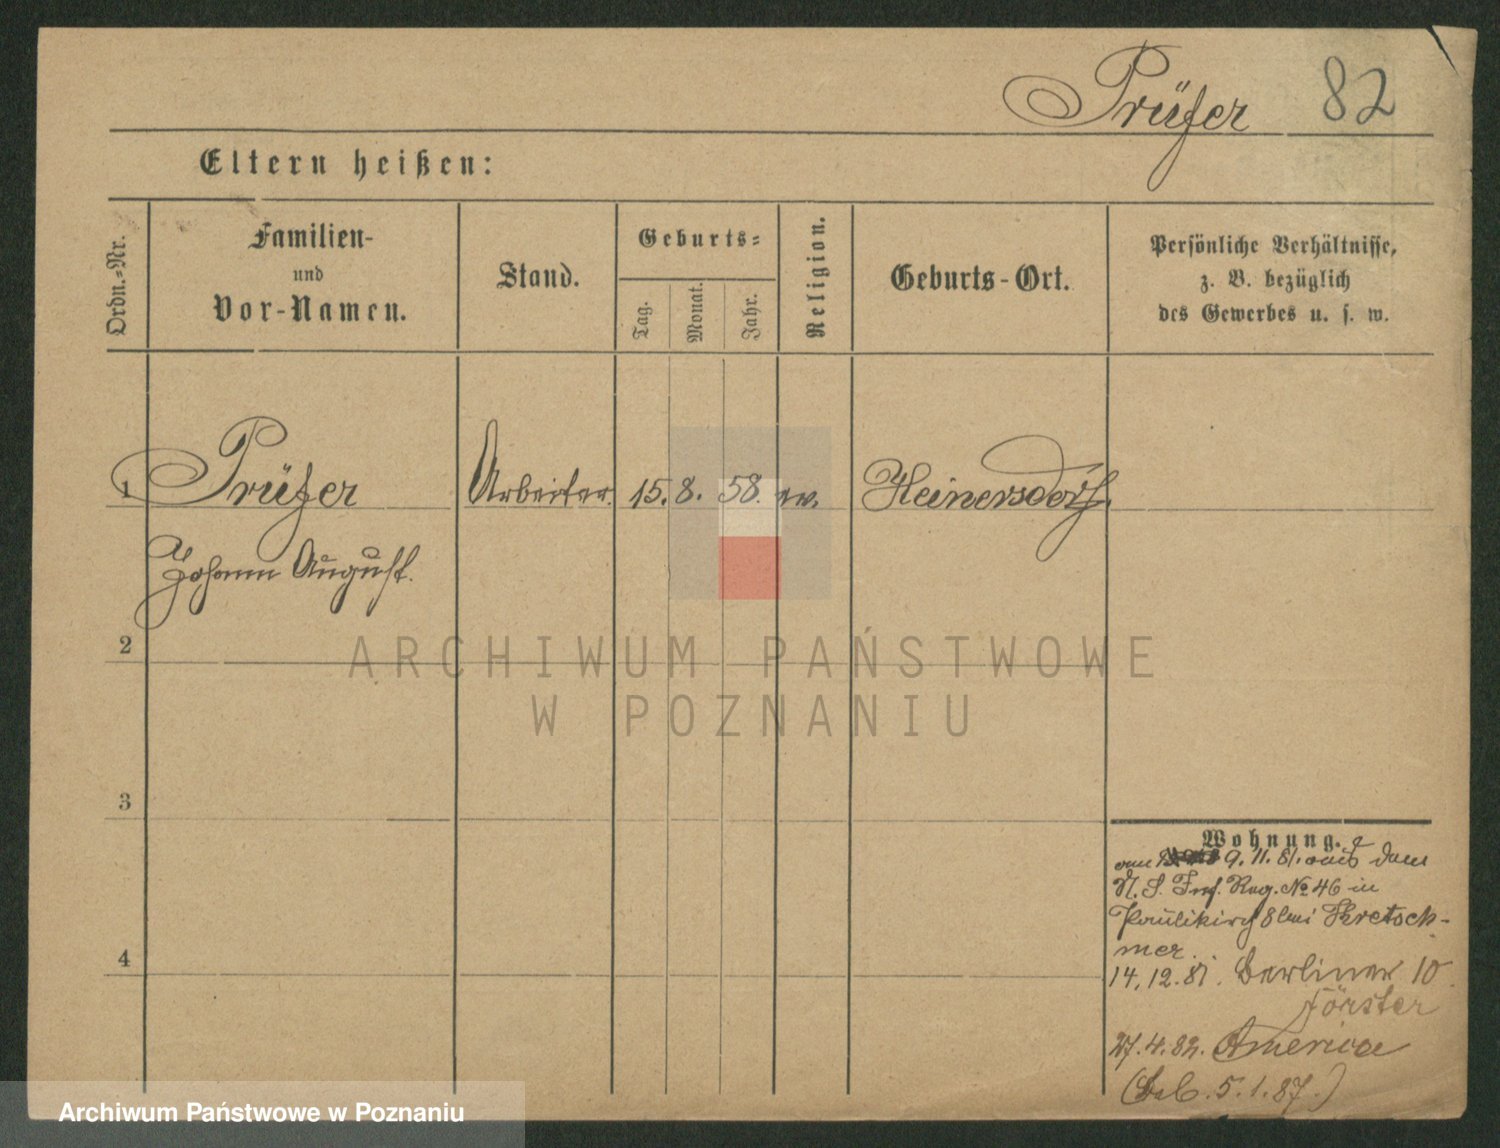 Prüfer 82
Eltern heißen:
Ordn.-Nr.
Familien-
und
Vor-Namen.
Stand.
Geburts-
Tag.
Monat.
Jahr.
Religion.
Geburts-Ort.
Persönliche Verhältnisse,
z. B. bezüglich
des Gewerbes u. s. w.
1 Prüfer Arbeiter. 15. 8. 58. ev. Heinersdorf.
Johann August.
2
3
4
ARCHIWUM PAŃSTWOWE
W POZNANIU
Wohnung.
9. 11. 81. aus dem
Inf. Reg. No 46 in
Paulikirch 8 bei Kretsch-
mer.
14. 12. 81. Berliner 10
Förster
27. 4. 82. America
5. 1. 87.)
Archiwum Państwowe w Poznaniu